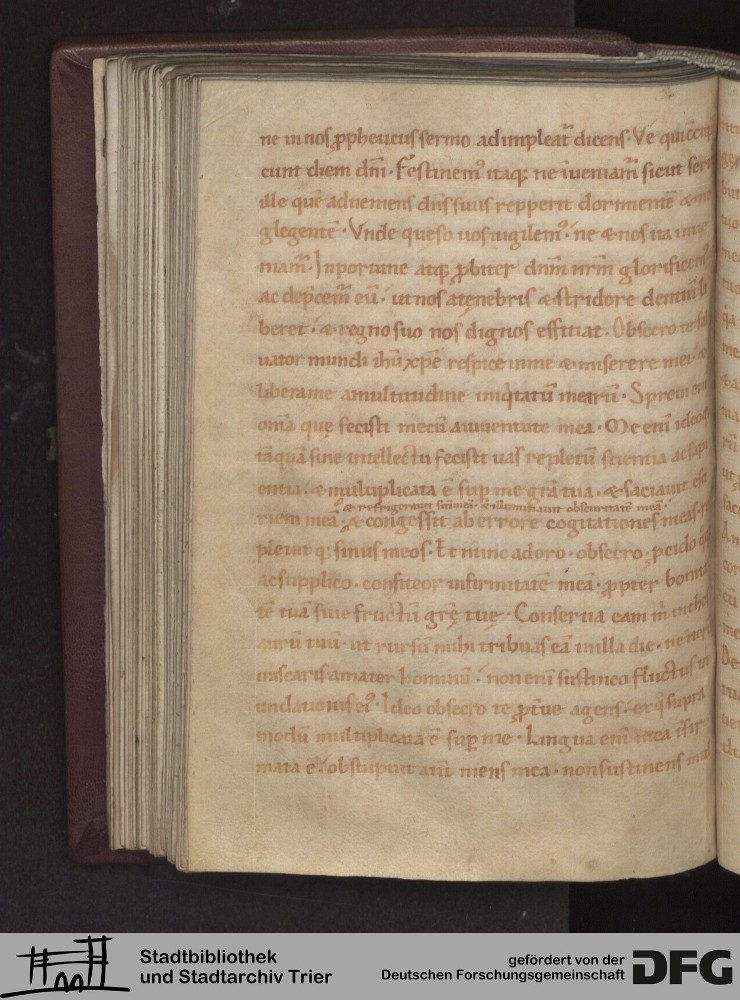 ne in nos ꝓpheticus sermo adimpleat̄ dicens· Ve qui ccup
cunt diem dn̄i· Festinemꝰ itaq; ne īueniam̄ sicut ser
ille quē adueniens dn̄s suus repperit dormientē &
glegentē· Vnde queso uos uigilemꝰ· ne & nos ita
niam̄· Inportune atq; ꝓbiter dnm̄ nrm̄ glorificem
ac dep̄cem̄ eū· ut nos a tenebris & stridore dentiū li
beret· & regno suo nos dignos effitiat· Obsecro te sal
uator mundi ihū xp̄e respice in me & miserere mei·
libera me a multitudine iniq̇tatū mearū· Spreui eni
om̄a quę fecisti mecū a iuuentute mea· Me enī ideo
tāquā sine intellectu fecisti uas repletū scientia ac sapi
entia· & multiplicata ē sup me gr̄a tua· & saciauit esu
& refrigerauit sitī meā· & illuminauit obscuritatē meā·
riem meā· & congessit ab errore cogitationes meas·
pleuit q; sinus meos· Et nunc adoro· obsecro· ꝓcido
ac supplico· confiteor infirmitatē meā· ꝓpter bonita
tē tuā siue fructū grę̄ tuę· Conserua eam m̄ in the
aurū tuū· ut rursū mihi tribuas eā in illa die· ne
irascaris amator hominū· non enī sustineo fluctus in
undationis eiꝰ· Ideo obsecro te ꝓtue agens· er q̇ supra
modū multiplicata ē sup me· Lingua enī mea īfir
mata ē· obstipuit aut̄ mens mea· non sustinens mul
Stadtbibliothek
und Stadtarchiv Trier
gefördert von der
Deutschen Forschungsgemeinschaft
DFG